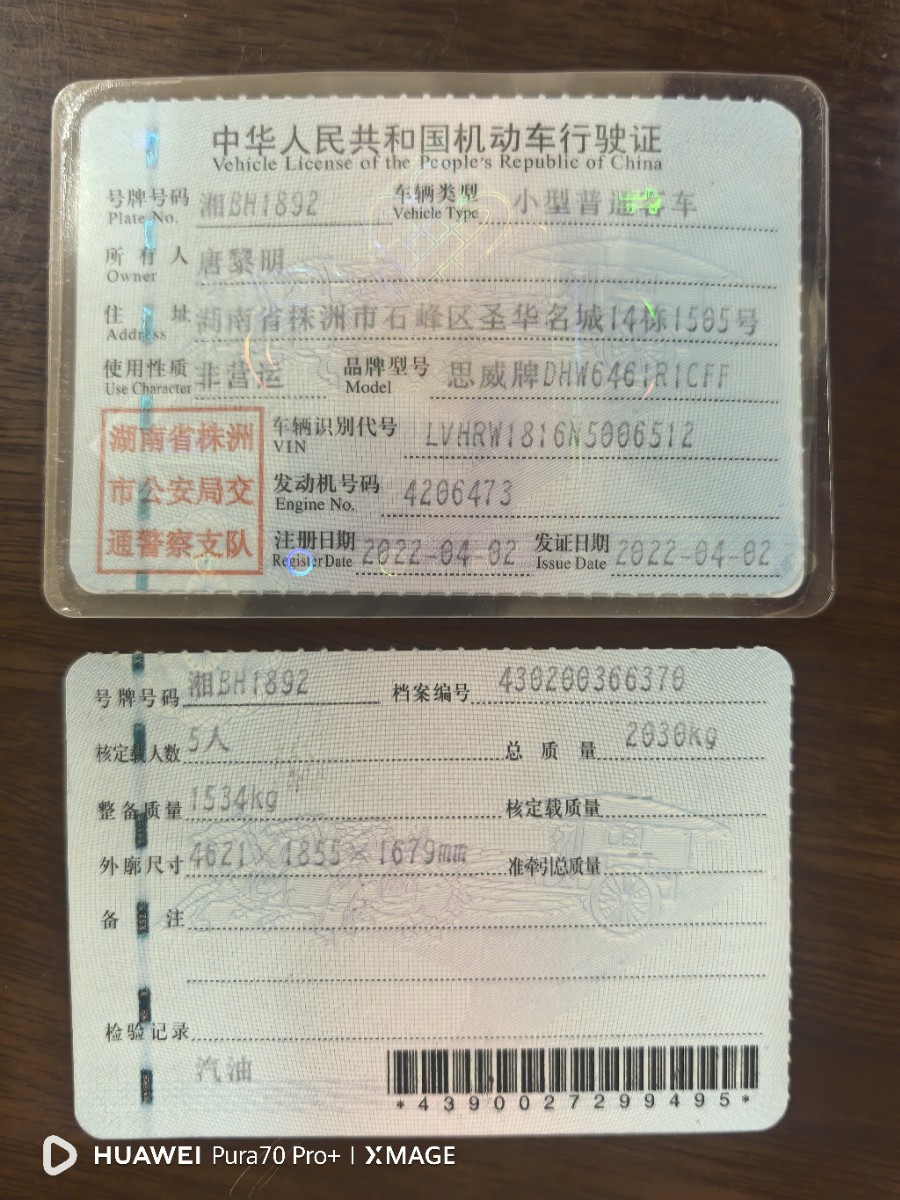 中华人民共和国机动车行驶证
Vehicle License of the People's Republic of China
号牌号码 湘BH1892 车辆类型 小型普通客车
Plate No. Vehicle Type
所有人 唐黎明
Owner
住址 湖南省株洲市石峰区圣华名城14栋1505号
Address
使用性质 非营运 品牌型号 思威牌DHW6461R1CFF
Use Character Model
湖南省株洲
市公安局交
通警察支队
车辆识别代号 LVHRW1816N5006512
VIN
发动机号码 4206473
Engine No.
注册日期 2022-04-02 发证日期 2022-04-02
Register Date Issue Date
号牌号码 湘BH1892 档案编号 430200366370
核定载人数 5人 总质量 2030kg
整备质量 1534kg 核定载质量 --
外廓尺寸 4621×1855×1679mm 准牵引总质量 --
备注
检验记录
汽油
*4390027299495*
HUAWEI Pura70 Pro+ | XMAGE